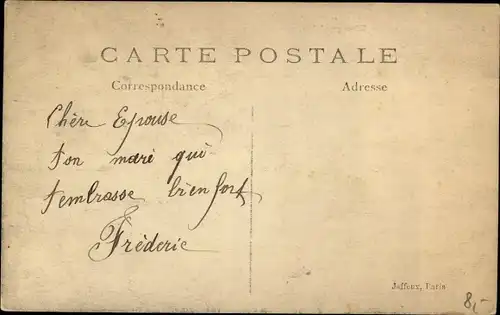 CARTE POSTALE
Correspondance
Adresse
Chère Epouse
Ton mari qui
t'embrasse bien fort
Fréderic
Jeffoux, Paris
8,-